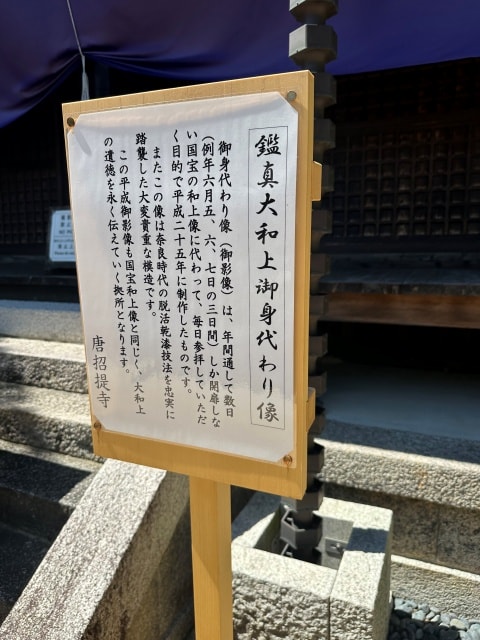 鑑真大和上御身代わり像
御身代わり像（御影像）は、年間通して数日
（例年六月五、六、七日の三日間）しか開扉しな
い国宝の和上像に代わって、毎日参拝していただ
く目的で平成二十五年に制作したものです。
またこの像は奈良時代の脱活乾漆技法を忠実に
踏襲した大変貴重な模造です。
この平成御影像も国宝和上像と同じく、大和上
の遺徳を永く伝えていく拠所となります。
唐招提寺